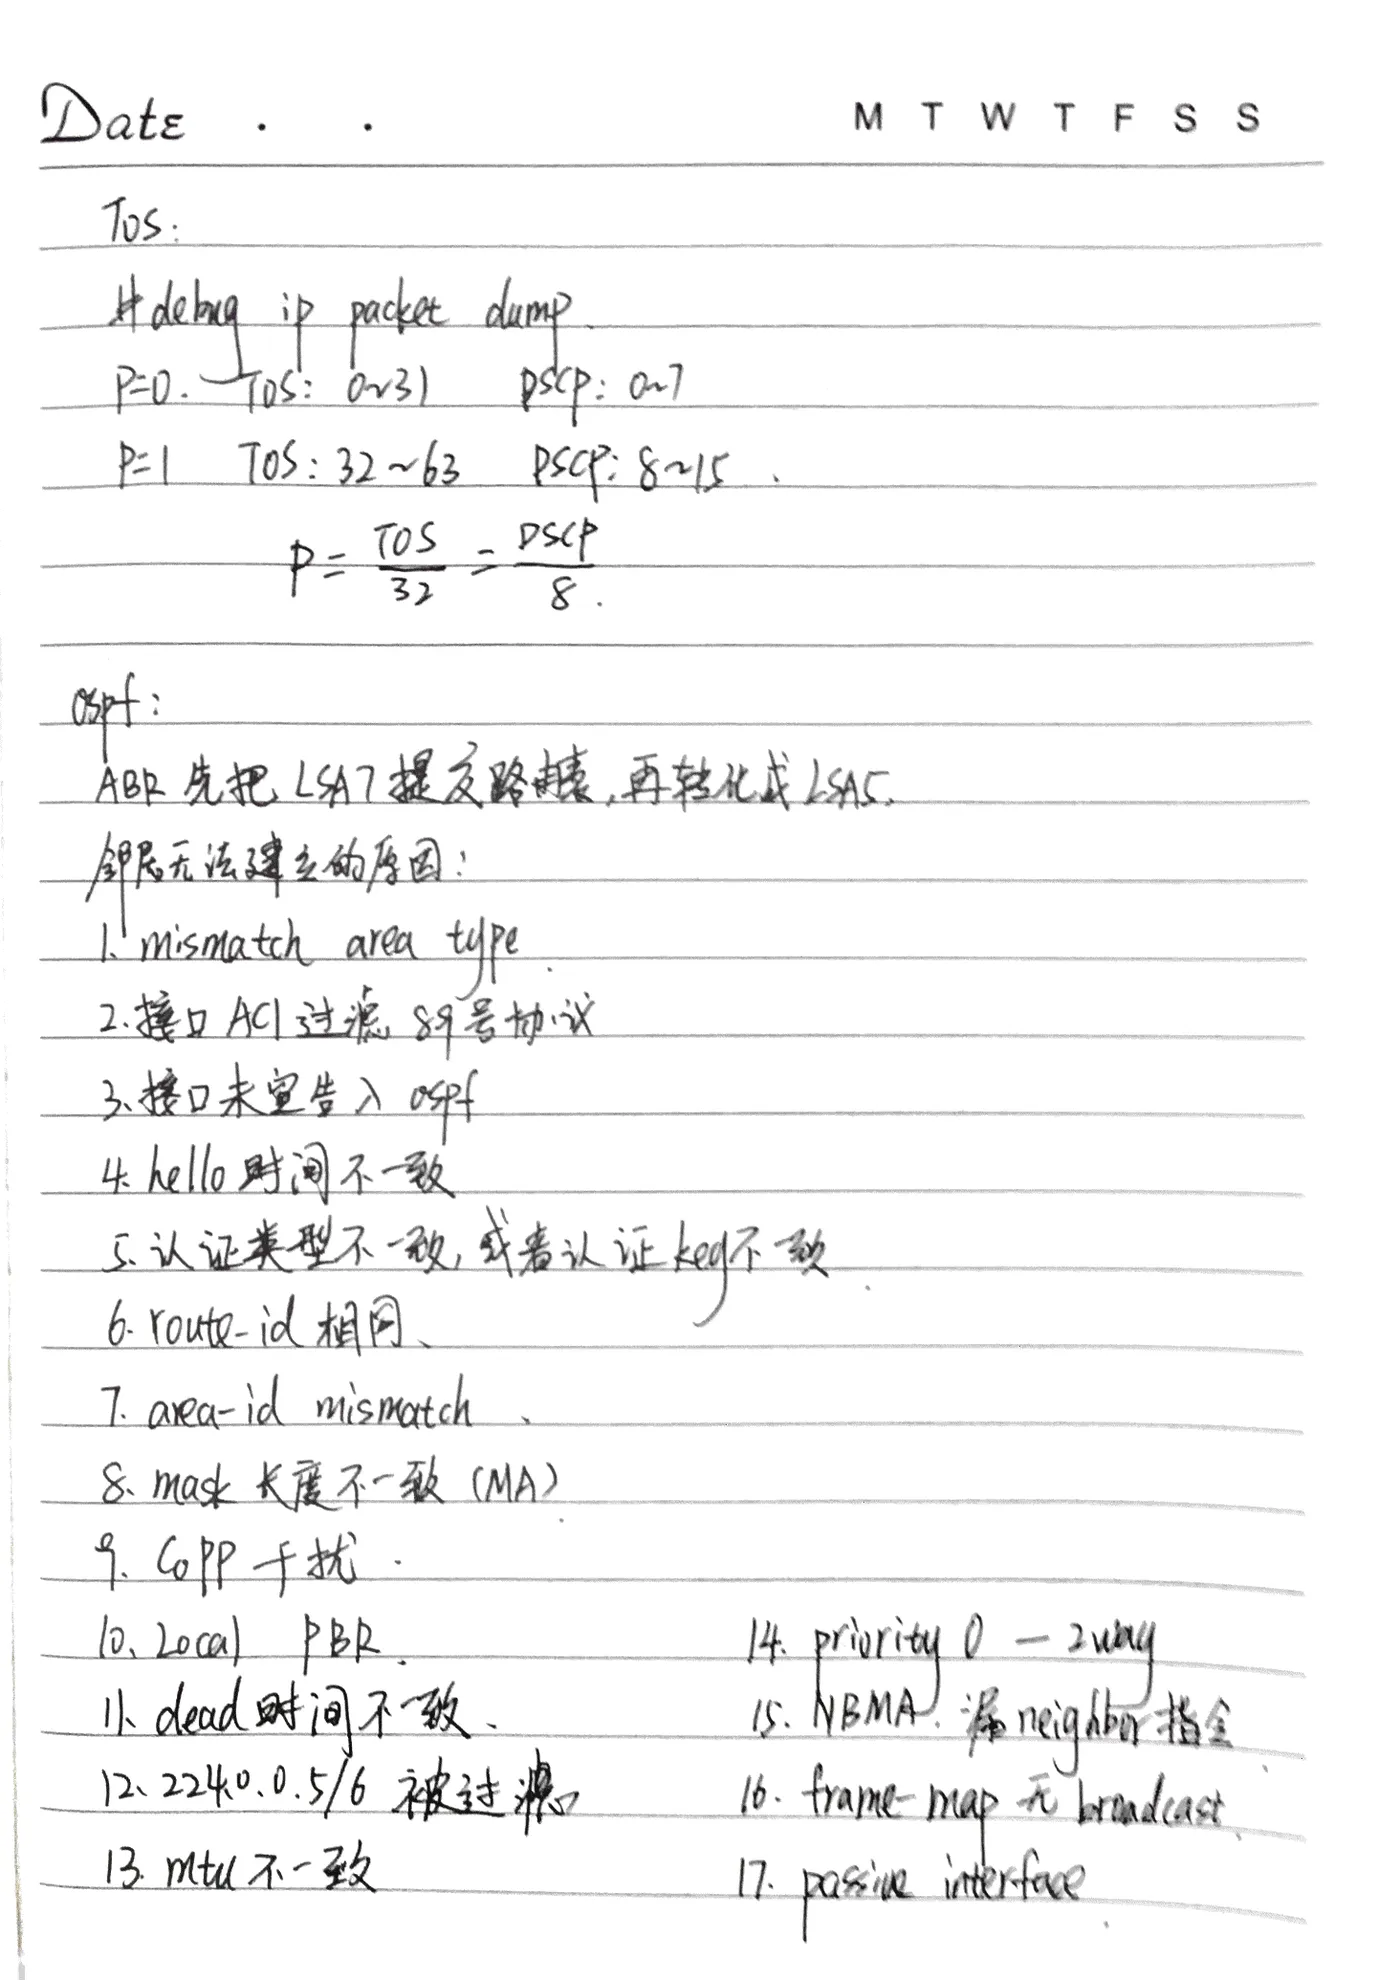 Date . .
M T W T F S S
TOS:
#debug ip packet dump.
P=0. TOS: 0~31 DSCP: 0~7
P=1 TOS: 32~63 DSCP: 8~15.
P = TOS/32 = DSCP/8.
ospf:
ABR 先把 LSA7 提交路由表,再转化成 LSA5.
邻居无法建立的原因:
1. mismatch area type.
2.接口 ACl 过滤 89号协议
3.接口未宣告入 ospf
4. hello 时间不一致
5.认证类型不一致,或者认证key不一致.
6. route-id 相同、
7. area-id mismatch、
8. mask 长度不一致(MA).
9. CoPP 干扰.
10. Local PBR.
11. dead 时间不一致、
12. 224.0.0.5/6 被过滤
13. mtu 不一致
14. priority 0 — 2way
15. NBMA. 漏neighbor指令.
16. frame-map 无 broadcast.
17. passive interface.